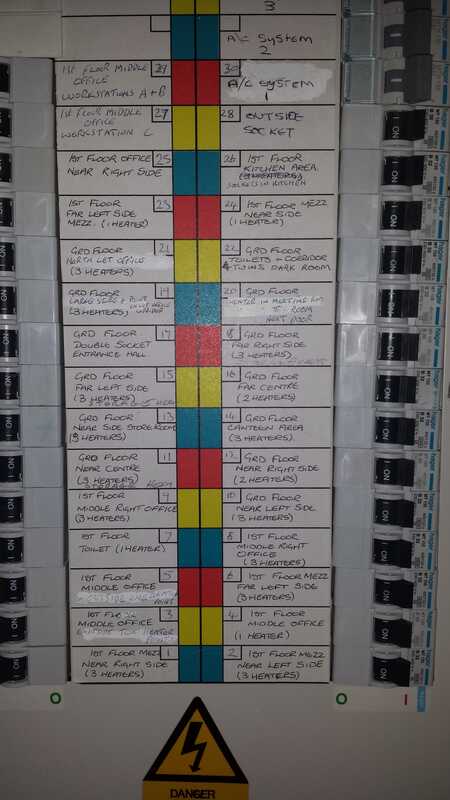 3
A/C SYSTEM
2
1ST FLOOR MIDDLE 29
OFFICE
WORKSTATIONS A+B
30
A/C SYSTEM
1
1ST FLOOR MIDDLE 27
OFFICE
WORKSTATION C
28 OUTSIDE
SOCKET
1ST FLOOR OFFICE 25
NEAR RIGHT SIDE
26 1ST FLOOR
KITCHEN AREA
SOCKETS IN KITCHEN
1ST FLOOR 23
FAR LEFT SIDE
MEZZ. (1 HEATER)
24 1ST FLOOR MEZZ
NEAR SIDE
(1 HEATER)
GRD FLOOR 21
NORTH LET OFFICE
(3 HEATERS)
22 GRD FLOOR
TOILETS + CORRIDOR
DARK ROOM
GRD FLOOR 19
(3 HEATERS)
20 GRD FLOOR
HEATER IN MEETING RM
ROOM
NEXT DOOR
GRD FLOOR 17
DOUBLE SOCKET
ENTRANCE HALL
18 GRD FLOOR
FAR RIGHT SIDE
(3 HEATERS)
GRD FLOOR 15
FAR LEFT SIDE
(3 HEATERS)
16 GRD FLOOR
FAR CENTRE
(2 HEATERS)
GRD FLOOR 13
NEAR SIDE STORE ROOM
(3 HEATERS)
14 GRD FLOOR
CANTEEN AREA
(3 HEATERS)
GRD FLOOR 11
NEAR CENTRE
(3 HEATERS)
STORAGE ROOM
12 GRD FLOOR
NEAR RIGHT SIDE
(2 HEATERS)
1ST FLOOR 9
MIDDLE RIGHT OFFICE
(3 HEATERS)
10 GRD FLOOR
NEAR LEFT SIDE
(3 HEATERS)
1ST FLOOR 7
TOILET (1 HEATER)
8 1ST FLOOR
MIDDLE RIGHT
OFFICE
(3 HEATERS)
1ST FLOOR 5
MIDDLE OFFICE
6 1ST FLOOR MEZZ
FAR LEFT SIDE
(3 HEATERS)
1ST FLOOR 3
MIDDLE OFFICE
4 1ST FLOOR
MIDDLE OFFICE
(1 HEATER)
1ST FLOOR MEZZ 1
NEAR RIGHT SIDE
(3 HEATERS)
2 1ST FLOOR MEZZ
NEAR LEFT SIDE
(3 HEATERS)
ON
hager
DANGER